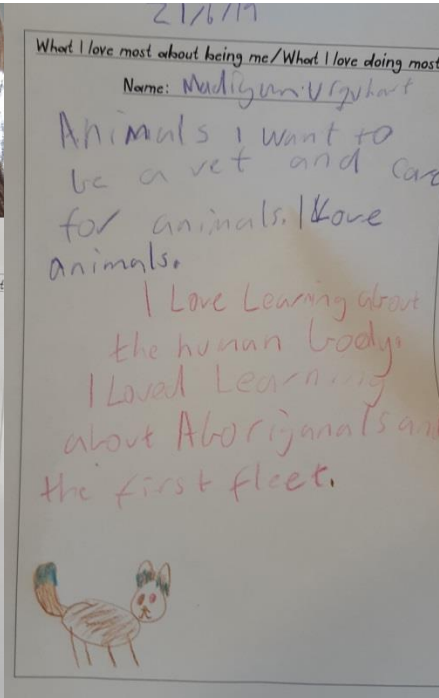 21/6/19
What I love most about being me/What I love doing most
Name: Madigan Urquhart
Animals I want to
be a vet and care
for animals. I Love
animals.
I Love Learning about
the human body.
I Loved Learning
about Aboriganals and
the first fleet.